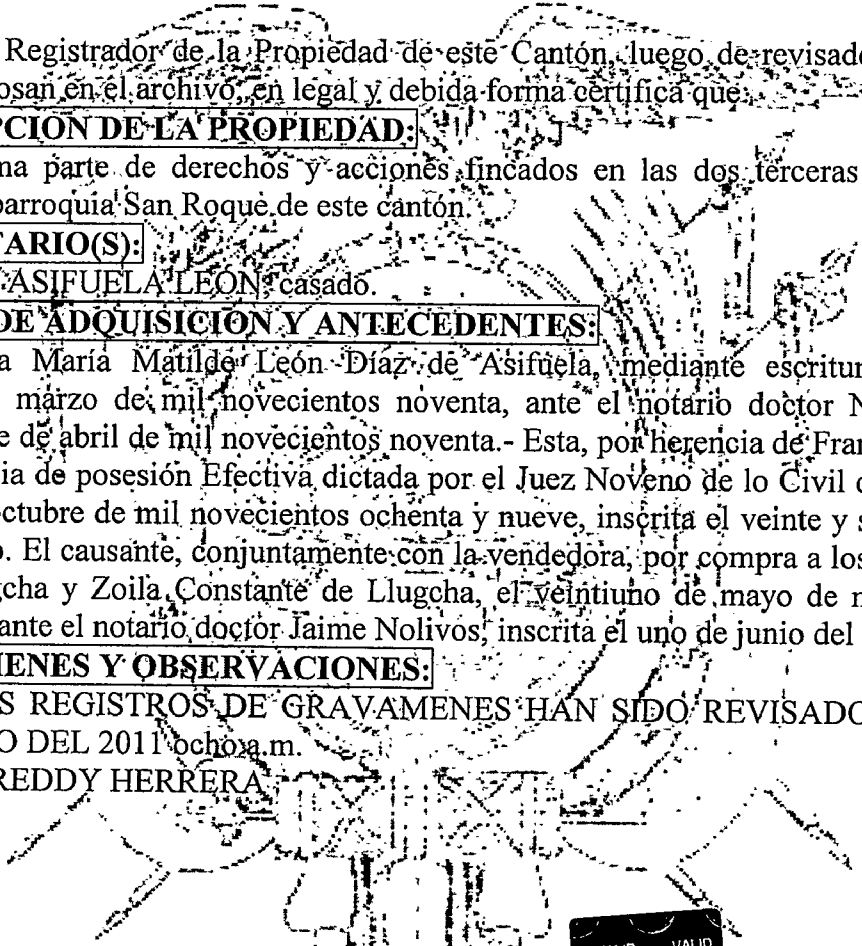 Registrador de la Propiedad de este Cantón, luego de revisado
osan en el archivo, en legal y debida forma certifica que:
PCIÓN DE LA PROPIEDAD:
ma parte de derechos y acciones fincados en las dos terceras
parroquia San Roque de este cantón.
TARIO(S):
ASIFUELA LEÓN, casado.
DE ADQUISICIÓN Y ANTECEDENTES:
a María Matilde León Díaz de Asifuela, mediante escritur
marzo de mil novecientos noventa, ante el notario doctor N
e de abril de mil novecientos noventa.- Esta, por herencia de Fran
ia de posesión Efectiva dictada por el Juez Noveno de lo Civil d
octubre de mil novecientos ochenta y nueve, inscrita el veinte y s
o. El causante, conjuntamente con la vendedora, por compra a los
gcha y Zoila Constante de Llugcha, el veintiuno de mayo de m
ante el notario doctor Jaime Nolivos, inscrita el uno de junio del
MENES Y OBSERVACIONES:
S REGISTROS DE GRAVAMENES HAN SIDO REVISADO
O DEL 2011 ocho a.m.
REDDY HERRERA
VALID